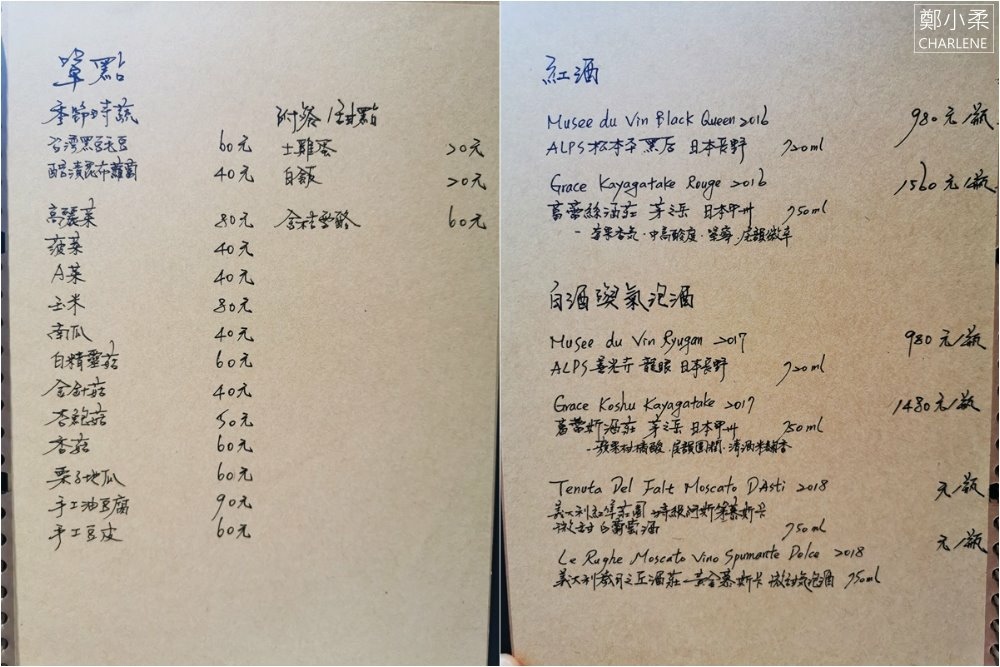 單點
季節時蔬
台灣黑豆毛豆 60元
醋漬昆布蘿蔔 40元
高麗菜 80元
菠菜 40元
A菜 40元
玉米 80元
南瓜 40元
白精靈菇 60元
金針菇 40元
杏鮑菇 50元
香菇 60元
栗子地瓜 60元
手工油豆腐 90元
手工豆皮 60元
附餐/甜點
土雞蛋 20元
白飯 20元
60元
鄭小柔
CHARLENE
紅酒
Musee du Vin Black Queen 2016 980元/瓶
ALPS 松本平黑后 日本長野 720ml
Grace Kayagatake Rouge 2016 1560元/瓶
葛蕾絲酒莊 茅之岳 日本甲州 750ml
- 香氣·中高酸度·單寧·尾韻微辛
白酒與氣泡酒
Musee du Vin Ryugan 2017 980元/瓶
ALPS 善光寺 龍眼 日本長野 720ml
Grace Koshu Kayagatake 2017 1480元/瓶
葛蕾斯酒莊 茅之岳 日本甲州 750ml
- 蘋果柑橘酸·尾韻圓潤·清酒米麴香
Tenuta Del Falt Moscato D'Asti 2018 元/瓶
義大利 莊園 特級阿斯蒂慕斯卡
微甜白葡萄酒 750ml
Le Rughe Moscato Vino Spumante Dolce 2018 元/瓶
義大利歲月之丘酒莊-黃金慕斯卡 微甜氣泡酒 750ml